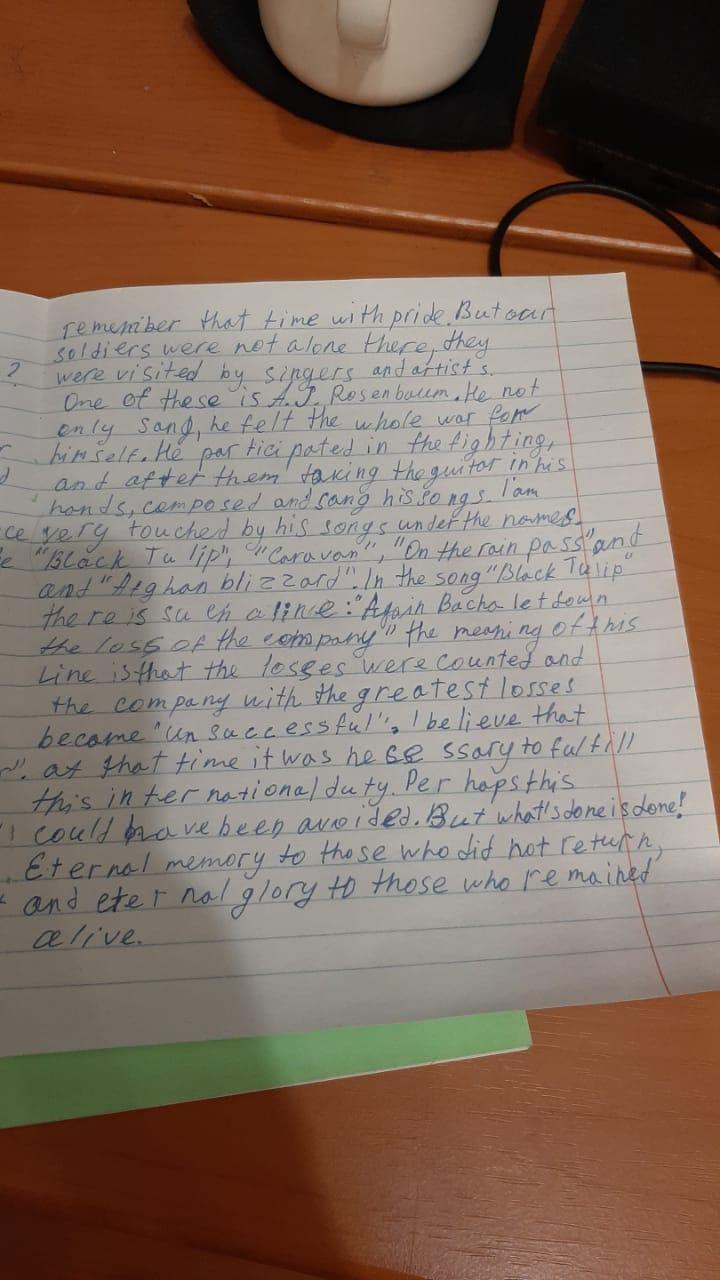 remember that time with pride. But our
soldiers were not alone there, they
? were visited by singers and artists.
One of these is A.J. Rosenbaum. He not
only sang, he felt the whole war for
himself. He participated in the fighting,
d and after them taking the guitar in his
hands, composed and sang his songs. I'am
ce very touched by his songs under the names
e "Black Tulip", "Caravan", "On the rain pass" and
and "Afghan blizzard". In the song "Black Tulip"
there is such a line: "Again Bacha let down
the loss of the company" the meaning of this
Line is that the losses were counted and
the company with the greatest losses
became "unsuccessful", I believe that
". at that time it was necessary to fulfill
this international duty. Perhaps this
could have been avoided. But what's done is done!
Eternal memory to those who did not return,
and eternal glory to those who remained
alive.